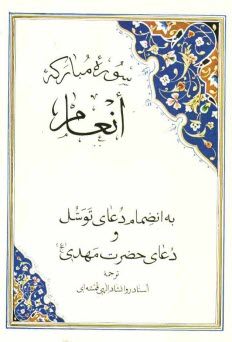 سورهٔ مبارکه
أنعام
به انضمام دعای توسّل
و
دعای حضرت مهدی (عج)
ترجمه
استاد روانشاد الهی قمشه‌ای